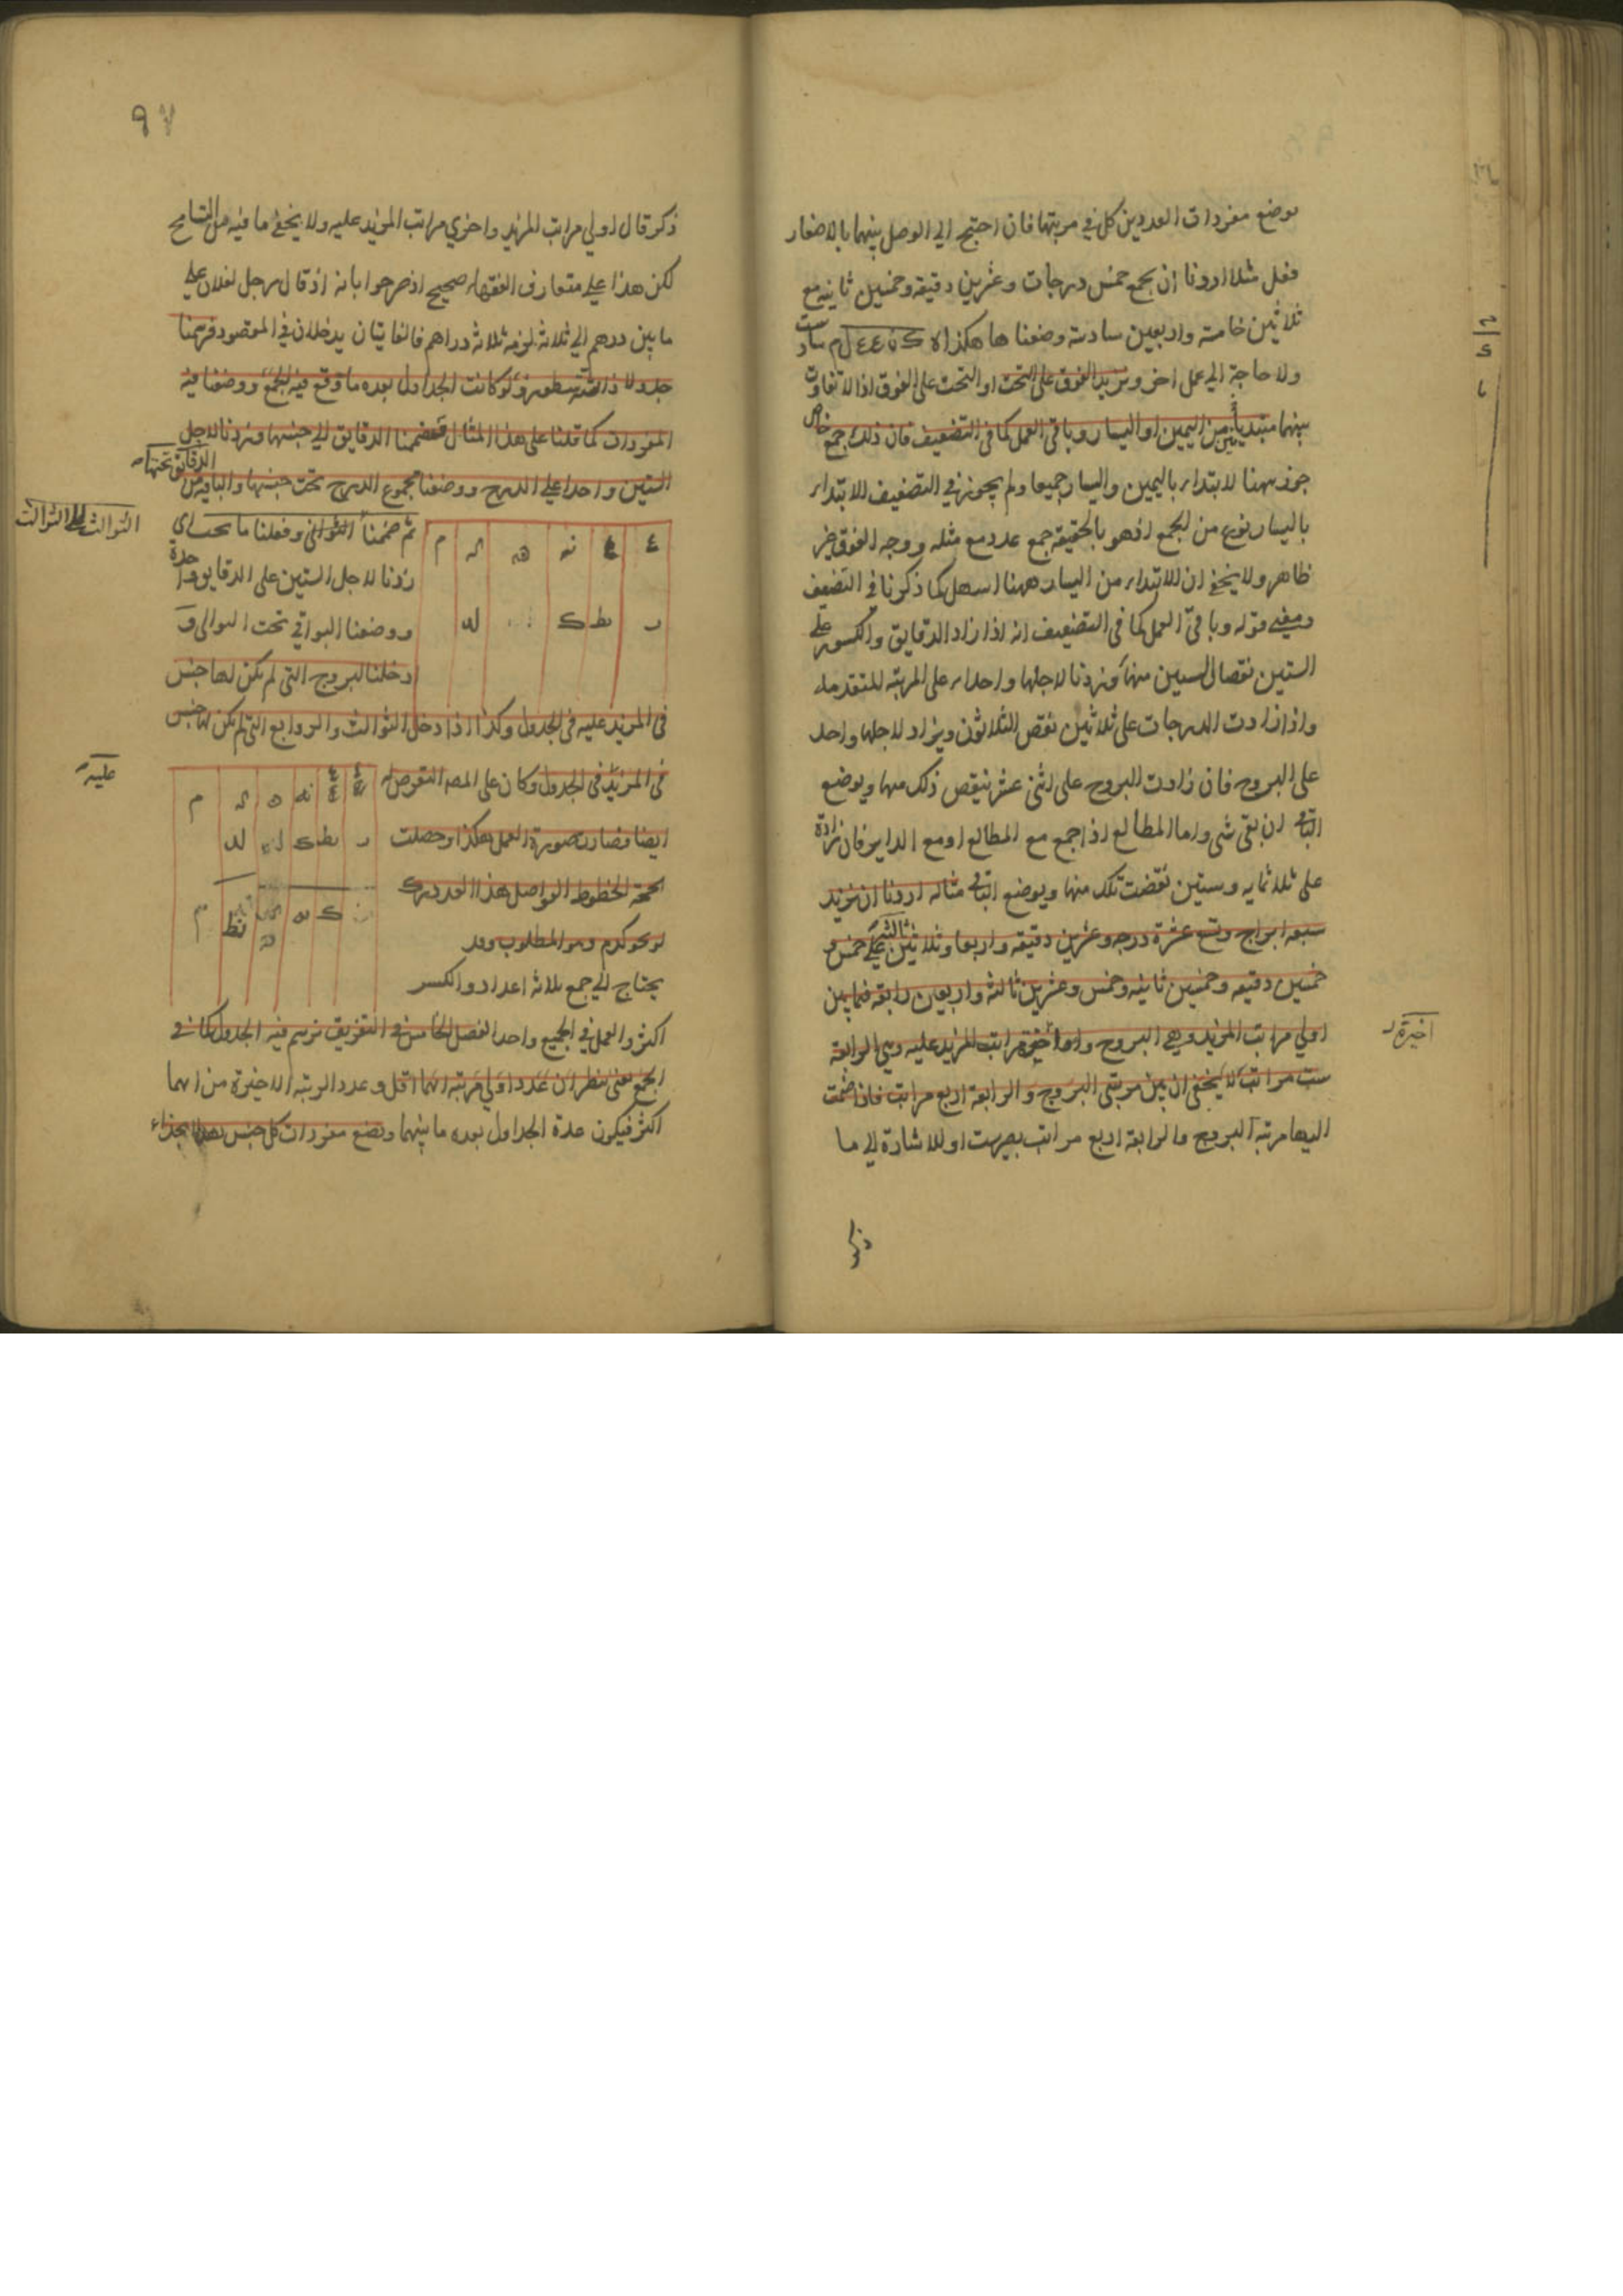 بوضع مفردات العددين كل في مرتبتها فان احتيج الي الوصل بينهما بالاصفار
فعل مثلا اردنا ان نجمع خمس درجات وعشرين دقيقه وخمسين ثانيه مع
ثلاثين خامسة واربعين سادسة وضعنا ها هكذا ه ك ن ل م
ولا حاجة الي عمل اخر ونزيد الفوق على التحت او التحت على الفوق اذ لا تفاوت
بينهما مبتديا من اليمين او اليسار وباقي العمل كما في التضعيف فان ذلك جمع خاص
جوز ههنا الابتداء باليمين واليسار جميعا ولم يجوز في التضعيف الابتداء
باليسار نوع من الجمع اذ هو بالحقيقة جمع عدد مع مثله ووجه الفوق غير
ظاهر ولا يخفى ان الابتداء من اليسار ههنا اسهل كما ذكرنا في التضعيف
ومعنى قوله وباقي العمل كما في التضعيف انه اذا زاد الدقايق والكسور على
الستين نقصنا الستين منها وزدنا لاجلها واحدا على المرتبة المتقدمة
واذا زادت الدرجات على ثلاثين نقص الثلاثون ويزاد لاجلها واحد
على البروج فان زادت البروج على اثنى عشر ينقص ذلك منها ويوضع
الباقي ان بقى شى واما المطالع اذا جمع مع المطالع او مع الداير فان زادة
على ثلاثمايه وستين نقصت تلك منها ويوضع الباقي مثاله اردنا ان نزيد
سبعه ابراج وتسع عشرة درجه وعشرين دقيقه واربعا وثلاثين ثالثة على خمس و
خمسين دقيقه وخمسين ثانيه وخمس وعشرين ثالثه واربعين رابعه فما بين
اولي مراتب المزيد وهي البروج واخيرة مراتب المزيد عليه وهي الرابعة
اخيرة
ست مراتب لا يخفى ان بين مرتبتى البروج والرابعة اربع مراتب فاذا ضمت
اليها مرتبة البروج والرابعة اربع مراتب يصير ست او للاشارة الي ما
ذكر
٩٧
ذكر قال اولي مراتب المزيد واخري مراتب المزيد عليه ولا يخفى ما فيه من التسامح
لكن هذا على متعارف الفقهاء صحيح اذ صرحوا بانه اذ قال رجل لفلان على
ما بين درهم الي ثلاثة لزمه ثلاثة دراهم فالغايتان يدخلان في المقصود فرسمنا
جدولا ذا سته سطور ولو كانت الجداول بعده ما وقع فيه الجمع ووضعنا فيه
المفردات كما قلنا على هذا المثال فضممنا الدقايق الي جنسها وزدنا لاجل
الدقايق تحتها
الستين واحدا على الدرج ووضعنا مجموع الدرج تحت جنسها والباقي من
ثم ضممنا الثوانى وفعلنا ما يجب اي
الثوالث الي الثوالث
زدنا لاجل الستين على الدقايق واحدة
ووضعنا البواقي تحت
دخلنا البروج التى لم يكن لها جنس
فى المزيد عليه فى الجدول وكذا اذا دخل الثوالث والروابع التى لم يكن لها جنس
فى المزيد فى الجدول وكان على المص التعرض له
عليه
ايضا فصارت صورة العمل هكذا وحصلت
تحت الخطوط الفواصل هذا العدد
وهو المطلوب وقد
يحتاج الي جمع ثلاثة اعداد والكسر
اكثر والعمل في الجميع واحد الفصل الخامس في التفريق نرسم فيه الجدول كما في
الجمع يعنى ننظر ان عدد اولي مرتبة ايهما اقل وعدد الرتبه الاخيرة من ايهما
اكثر فيكون عدة الجداول بعده ما بينهما ونضع مفردات كل جنس بحذاء